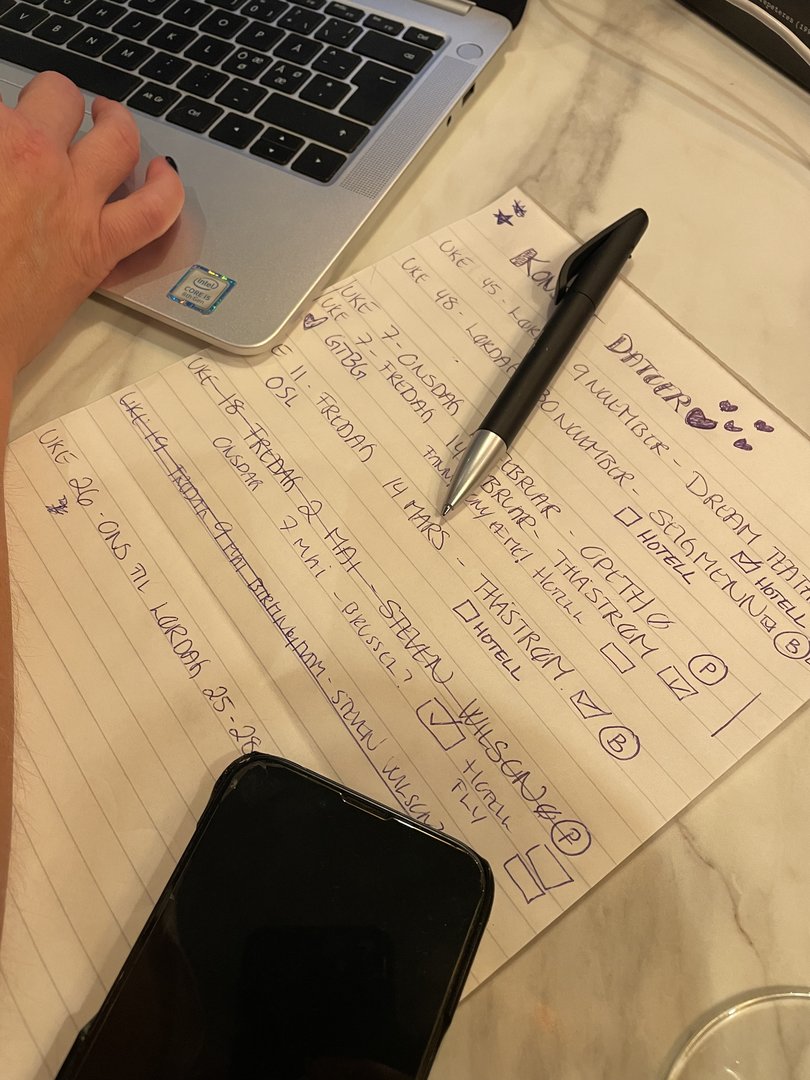 DATOER
UKE 45 - 9 NOVEMBER - DREAM TEATH
HOTELL
UKE 48 - LØRDAG 30 NOVEMBER - SEIGMENN B
HOTELL
UKE 7 - ONSDAG EBRUAR - OPETH P
UKE 7 - FREDAG EBRUAR - THÅSTRØM
GTBG HOTELL
E 11 - FREDAG 14 MARS - THÅSTRØM B
OSL HOTELL
UKE 18 FREDAG 2 MAI - STEVEN WILSON P
ONSDAG 7 MAI - BRUSSEL? HOTELL
FLY
UKE 19 FREDAG 9 MAI - STEVEN WILSON?
UKE 26 - ONS TIL LØRDAG 25-28
intel
CORE i5
8th Gen
Alt Gr
Ctrl